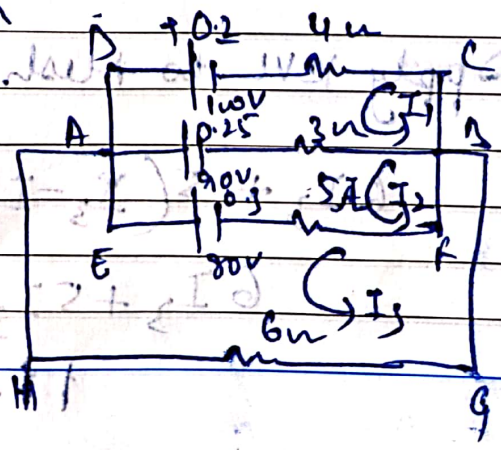 D + 0.2 4Ω C
100V I₁
A 0.25 3Ω B
90V
0.3 5Ω I₂
E 80V F
I₃
6Ω
H G